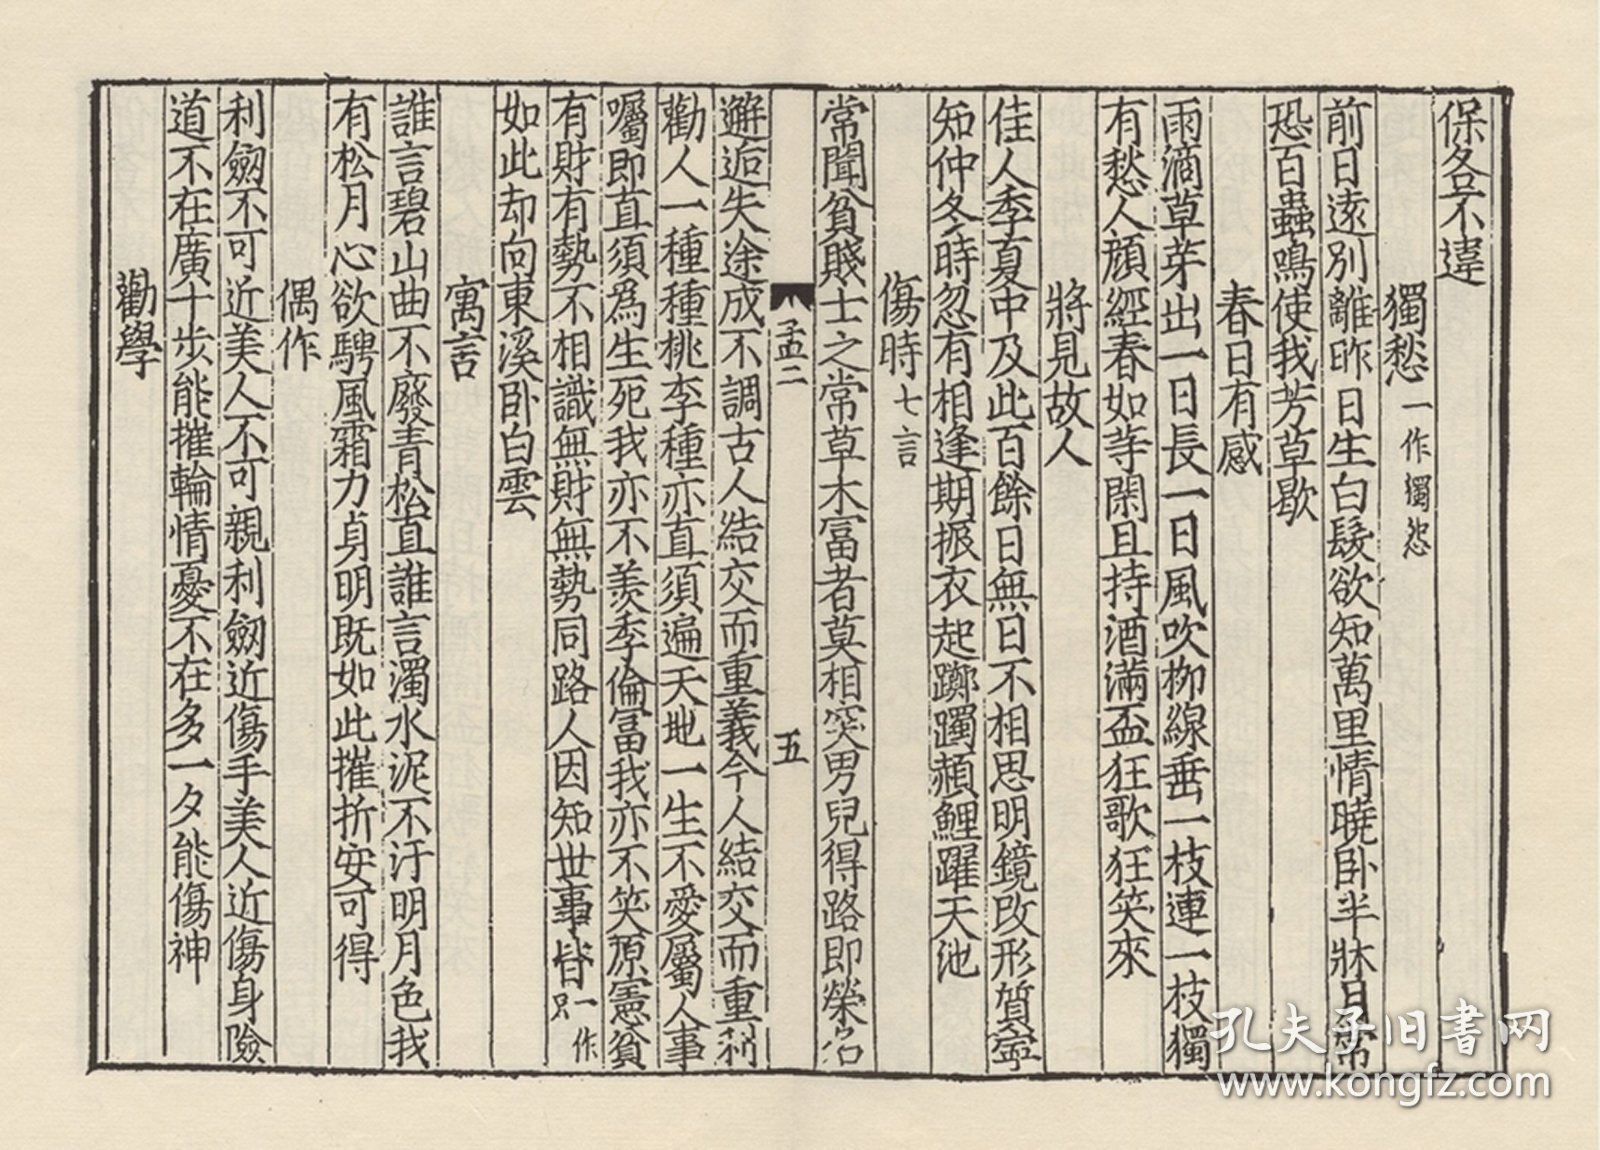 保各不違
獨愁一作獨怨
前日遠別離昨日生白髮欲知萬里情曉卧半牀月常
恐百蟲鳴使我芳草歇
春日有感
雨滴草芽出一日長一日風吹柳線垂一枝連一枝獨
有愁人顔經春如等閑且持酒滿盃狂歌狂笑來
將見故人
佳人季夏中及此百餘日無日不相思明鏡改形質寧
知仲冬時忽有相逢期振衣起躑躅頳鯉躍天池
傷時七言
常聞貧賤士之常草木冨者莫相突男兒得路即榮名
孟二
五
邂逅失途成不調古人結交而重義今人結交而重利
勸人一種種桃李種亦直須遍天地一生不愛屬人事
囑即直須爲生死我亦不羨季倫冨我亦不笑原憲貧
有財有勢不相識無財無勢同路人因知世事皆一作只
如此却向東溪卧白雲
寓言
誰言碧山曲不廢青松直誰言濁水泥不汙明月色我
有松月心欲騁風霜力貞明既如此摧折安可得
偶作
利劒不可近美人不可親利劒近傷手美人近傷身險
道不在廣十步能摧輪情憂不在多一夕能傷神
勸學
孔夫子旧书网
www.kongfz.com